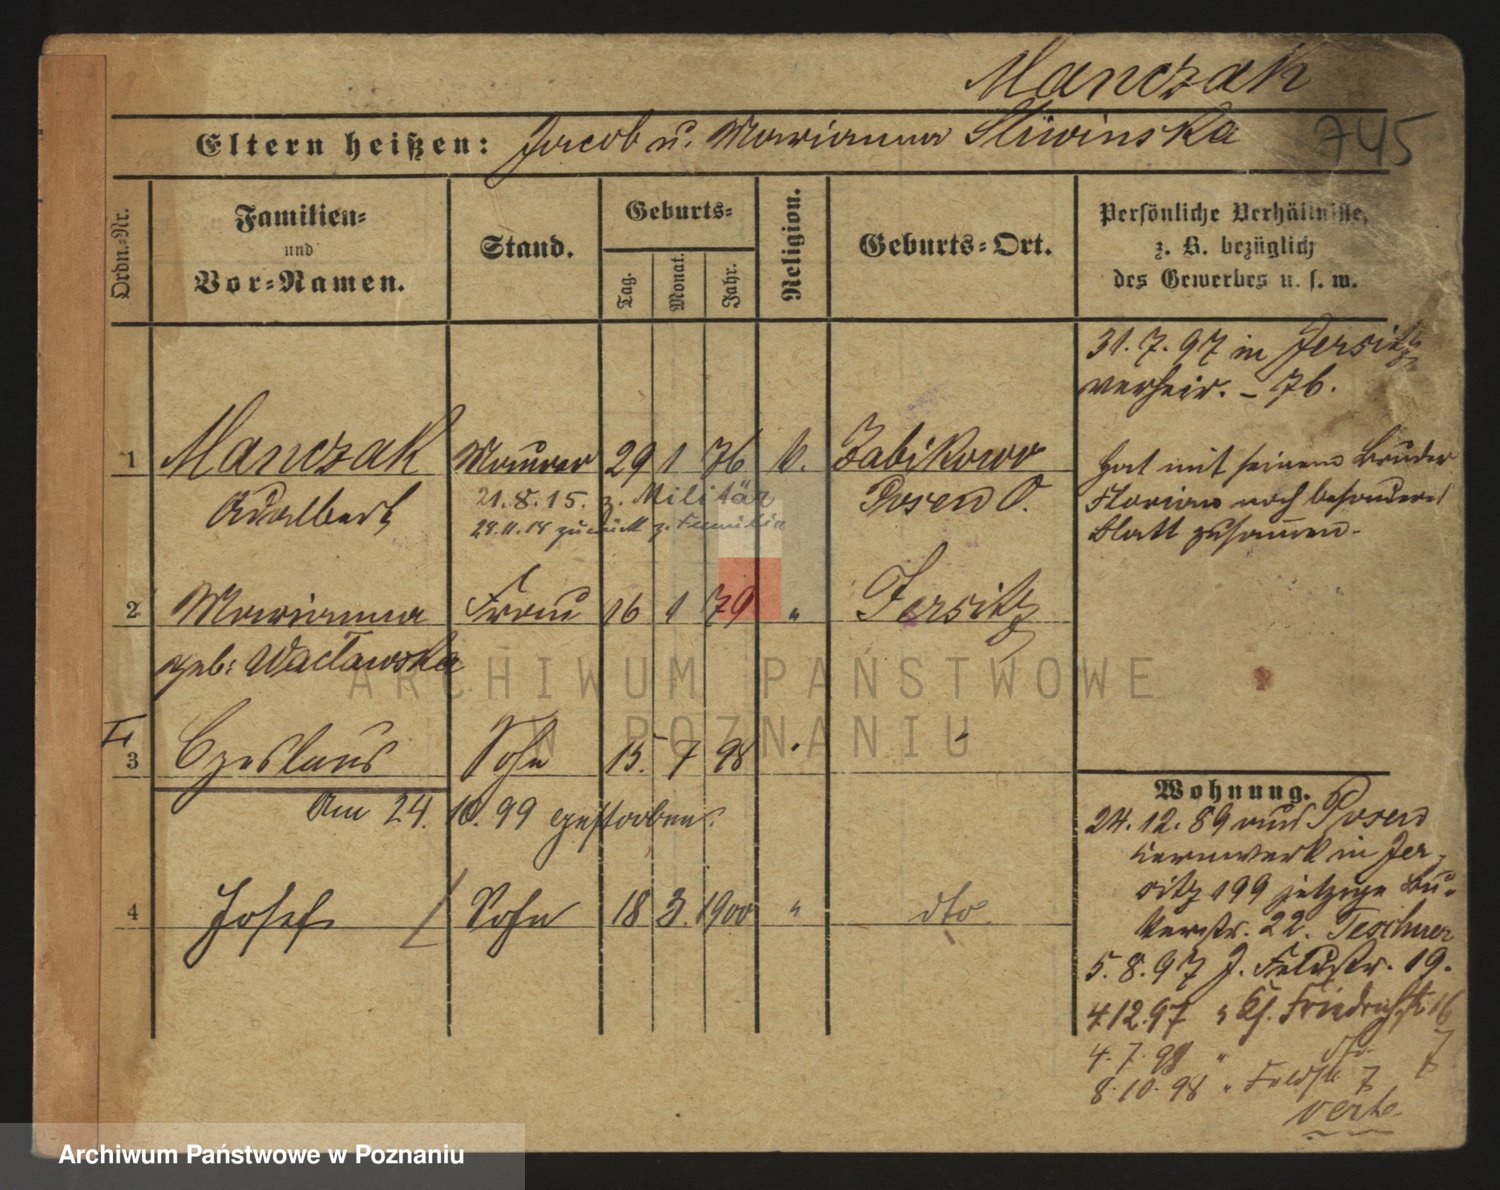 Manczak
Eltern heißen: Jacob u. Marianna Sliwinska
745
Ordn.-Nr.
Familien-
und
Vor-Namen.
Stand.
Geburts-
Tag.
Monat.
Jahr.
Religion.
Geburts-Ort.
Persönliche Verhältnisse,
z. B. bezüglich
des Gewerbes u. s. w.
31. 7. 97 in Jersitz
verheir. – 76.
1 Manczak Maurer 29 1 76 k. Zabikowo
Adalbert
21. 8. 15. z. Militär
Posen O.
28.11.18 zurück z. Familie
Hat mit seinem Bruder
Florian noch besonderes
Blatt zusammen.
2 Marianna Frau 16 1 79 " Jersitz
geb: Wacławska
3 Czeslaus Sohn 15. 7 98 " "
Am 24. 10. 99 gestorben.
4 Josef Sohn 18 3. 1900 " dto
Wohnung.
24. 12. 89 aus Posen
Bernwerk in Jer-
sitz 199 jetzige Bu-
kerstr. 22. Teschner
5. 8. 97 J. Feldstr. 19.
4.12.97 " Kf. Friedrichstr. 16
4. 7. 98 " dto. 7
8. 10. 98 " Feldstr. 7
verte
ARCHIWUM PAŃSTWOWE
W POZNANIU
Archiwum Państwowe w Poznaniu